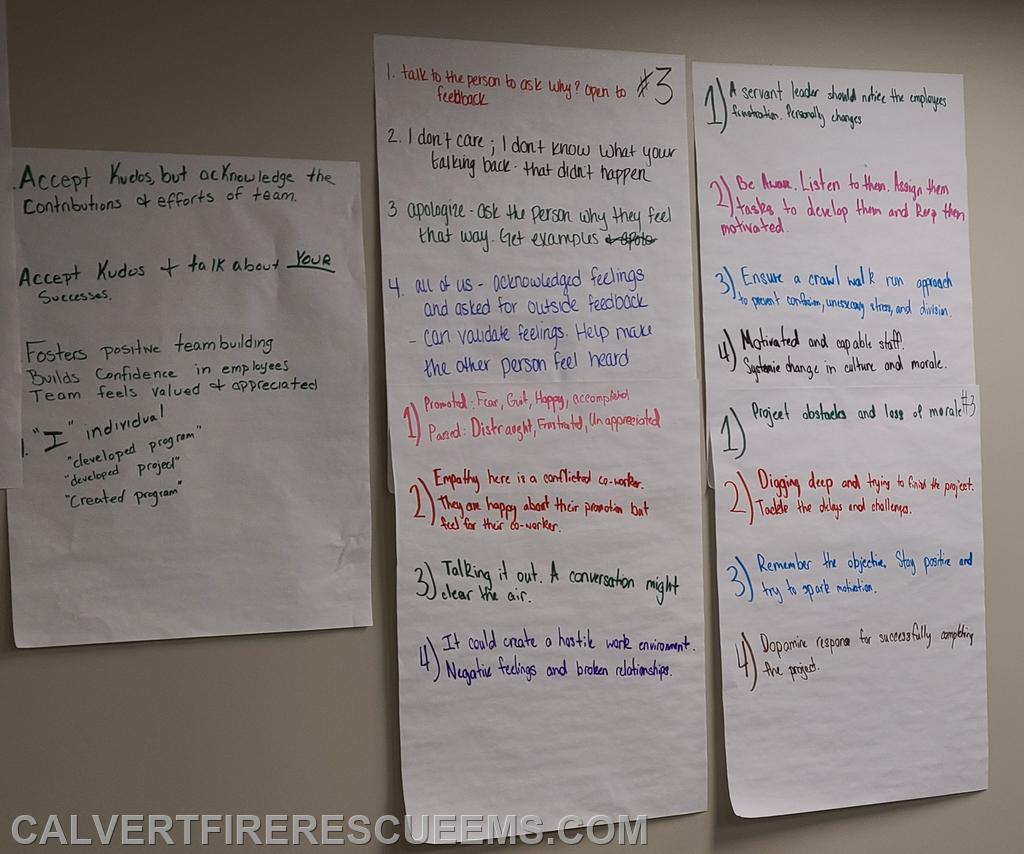 Accept Kudos, but acknowledge the
Contributions & efforts of team.
Accept Kudos + talk about YOUR
Successes.
Fosters positive teambuilding
Builds Confidence in employees
Team feels valued & appreciated
1. "I" individual
"developed program"
"developed project"
"Created program"
1. talk to the person to ask why? open to #3
feedback
2. I don't care; I don't know what your
talking back - that didn't happen
3 apologize - ask the person why they feel
that way. Get examples
4. all of us - acknowledged feelings
and asked for outside feedback
- can validate feelings. Help make
the other person feel heard
1) Promoted: Fear, Guilt, Happy, accomplished
Passed: Distraught, Frustrated, Unappreciated
2) Empathy here is a conflicted co-worker.
They are happy about their promotion but
feel for their co-worker.
3) Talking it out. A conversation might
clear the air.
4) It could create a hostile work enviroment.
Negative feelings and broken relationships.
1) A servant leader should notice the employees
frustration. Personally changes
2) Be Aware. Listen to them. Assign them
tasks to develop them and Keep them
motivated.
3) Ensure a crawl walk run approach
to prevent confusion, unnessecary stress, and division.
4) Motivated and capable staff.
Systemic change in culture and morale.
1) Project obstacles and loss of morale #3
2) Digging deep and trying to finish the project.
Tackle the delays and challenges.
3) Remember the objective. Stay positive and
try to spark motivation.
4) Dopamine response for successfully completing
the project.
CALVERTFIRERESCUEEMS.COM